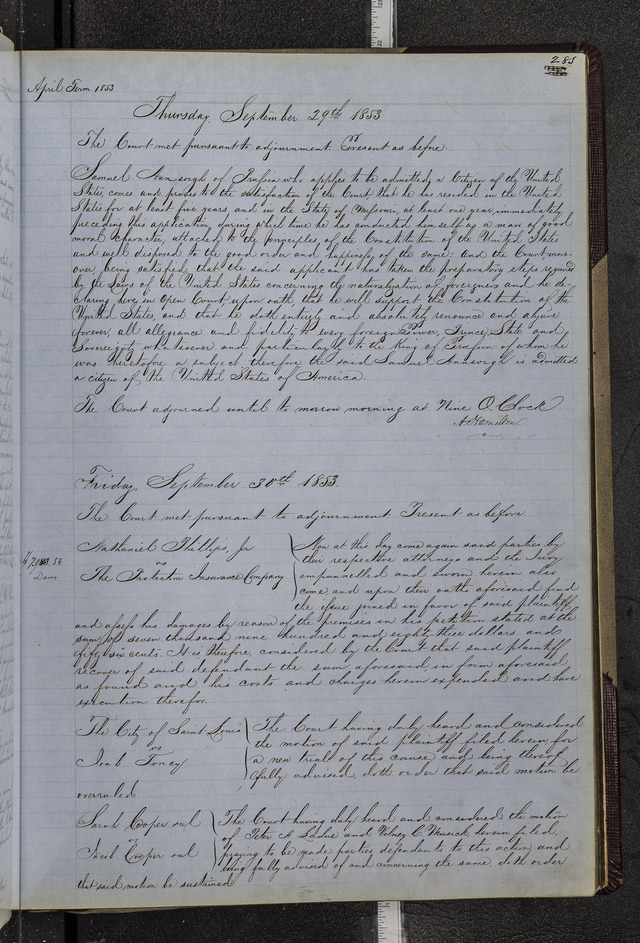 285
April Term 1853
Thursday September 29th 1853
The Court met pursuant to adjournment Present as before.
Samuel of Prussia who applies to be admitted a Citizen of the United
States, comes and proves to the satisfaction of the Court that he has resided in the United
States for at least five years and in the State of Missouri, at least one year, immediately
preceding this application, during which time he has conducted himself as a man of good
moral character, attached to the principles of the Constitution of the United States
and well disposed to the good order and happiness of the same: And the Court more-
over, being satisfied that the said applicant has taken the preparatory steps required
by the Laws of the United States concerning the naturalization of foreigners and he de-
claring here in Open Court upon oath, that he will support the Constitution of the
United States, and that he doth entirely and absolutely renounce and abjure
forever, all allegiance and fidelity to every foreign Power, Prince, State and
Sovereignty whatsoever and particularly to the King of Prussia of whom he
was heretofore a subject, therefore the said Samuel is admitted
a citizen of the United States of America.
The Court adjourned until to morrow morning at Nine O.Clock
A. Hamilton
Friday September 30th 1853
The Court met pursuant to adjournment Present as before.
Nathaniel Phillips, Jr
vs
The Protection Insurance Company
56
Dams
Now at this day come again said parties by
their respective attorneys and the Jury
empannelled and sworn herein also
come and upon their oaths aforesaid find
the issue joined in favor of said plaintiff
and assess his damages by reason of the premises in his petition stated at the
sum of seven thousand nine hundred and eighty three dollars and
fifty six cents. It is therefore considered by the Court that said plaintiff
recover of said defendant the sum aforesaid in form aforesaid
as found and his costs and charges herein expended and have
execution therefor.
The City of Saint Louis
vs
Toney
The Court having duly heard and considered
the motion of said plaintiff filed herein for
a new trial of this cause and being thereof
fully advised, doth order that said motion be
overruled
Sarah Cooper et al
vs
Jacob Cooper et al
The Court having duly heard and considered the motion
of Peter A. Ladue and Volney C. Musick, herein filed,
praying to be made parties defendants to this action, and
being fully advised of and concerning the same, doth order
that said motion be sustained